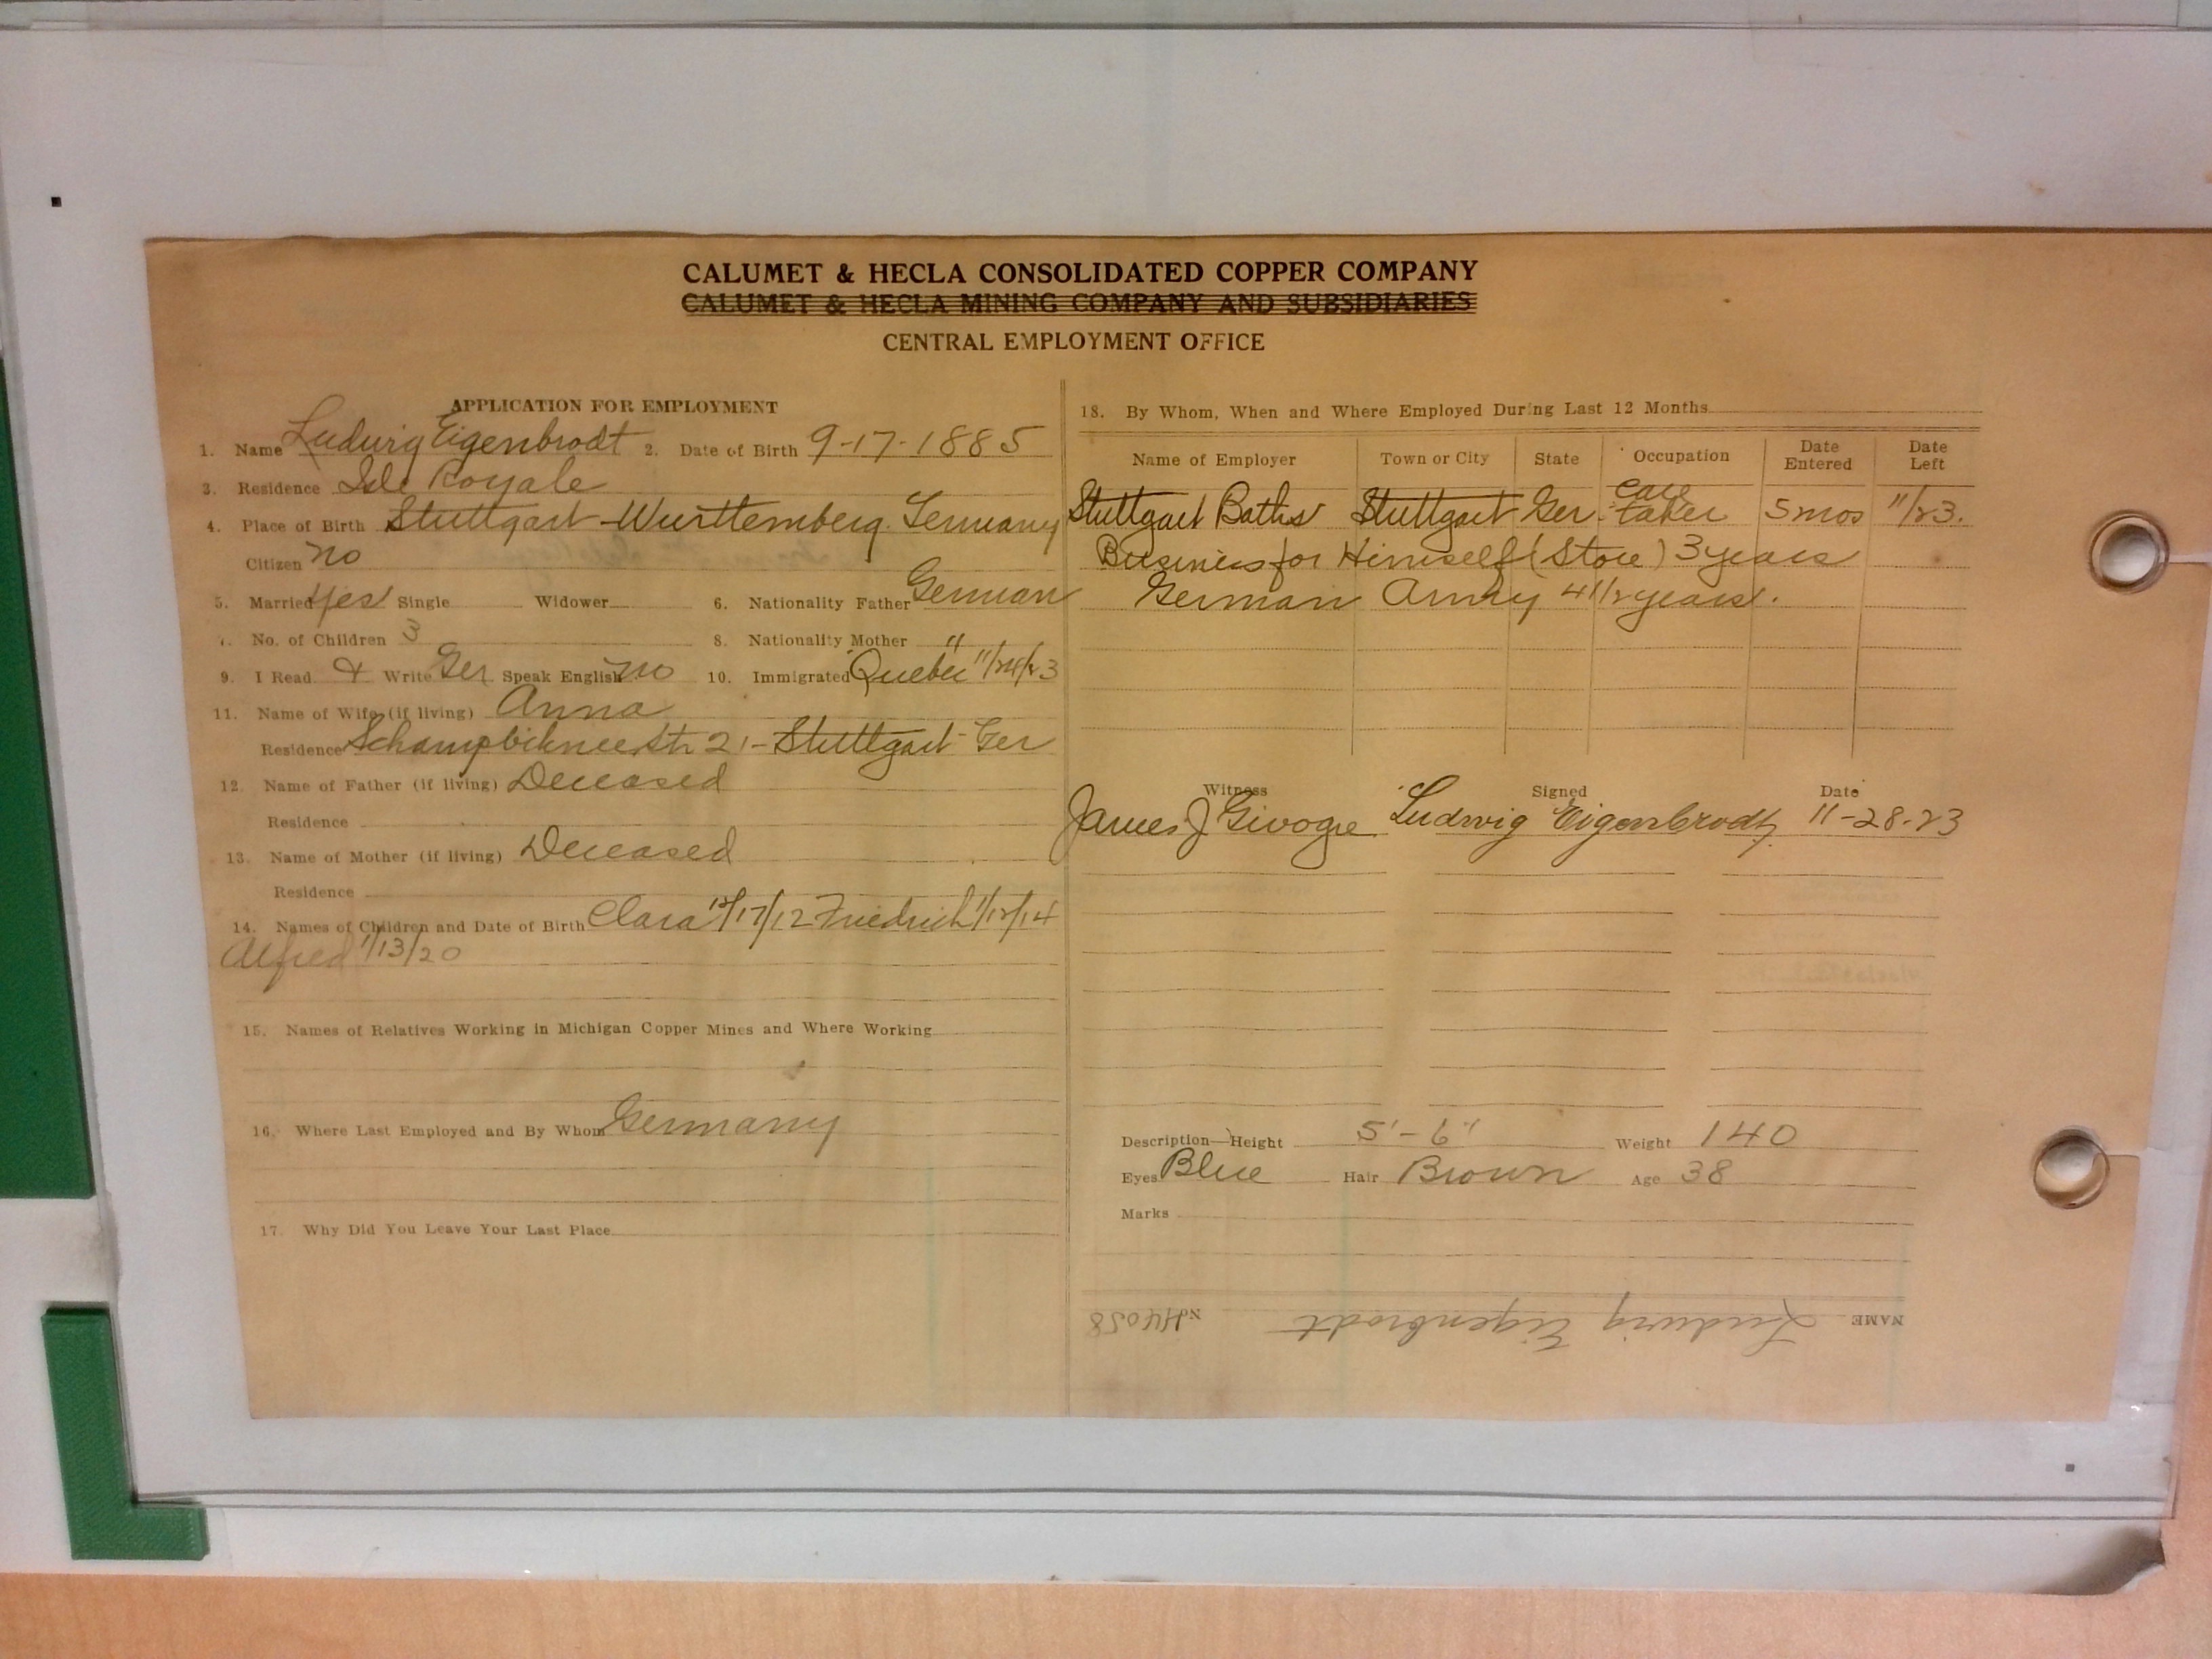 CALUMET & HECLA CONSOLIDATED COPPER COMPANY
CALUMET & HECLA MINING COMPANY AND SUBSIDIARIES
CENTRAL EMPLOYMENT OFFICE
APPLICATION FOR EMPLOYMENT
1. Name Ludwig Eigenbrodt 2. Date of Birth 9-17-1885
3. Residence Isle Royale
4. Place of Birth Stuttgart-Wurttemberg. Germany
Citizen no
5. Married yes Single Widower 6. Nationality Father German
7. No. of Children 3 8. Nationality Mother "
9. I Read & Write Ger Speak English no 10. Immigrated Quebec 11/24/23
11. Name of Wife (if living) Anna
Residence 21-Stuttgart-Ger
12. Name of Father (if living) Deceased
Residence
13. Name of Mother (if living) Deceased
Residence
14. Names of Children and Date of Birth Clara /17/12 Friedrich 1/12/14
Alfred 1/13/20
15. Names of Relatives Working in Michigan Copper Mines and Where Working
16. Where Last Employed and By Whom Germany
17. Why Did You Leave Your Last Place
18. By Whom, When and Where Employed During Last 12 Months
Name of Employer Town or City State Occupation Date Entered Date Left
Stuttgart Baths Stuttgart Ger. care taker 5 mos 11/23.
Business for Himself (Store) 3 years
German Army 4 1/2 years.
Witness Signed Date
James J Ludwig Eigenbrodt 11-28-23
Description—Height 5'-6" Weight 140
Eyes Blue Hair Brown Age 38
Marks
NAME Ludwig Eigenbrodt No. H4058